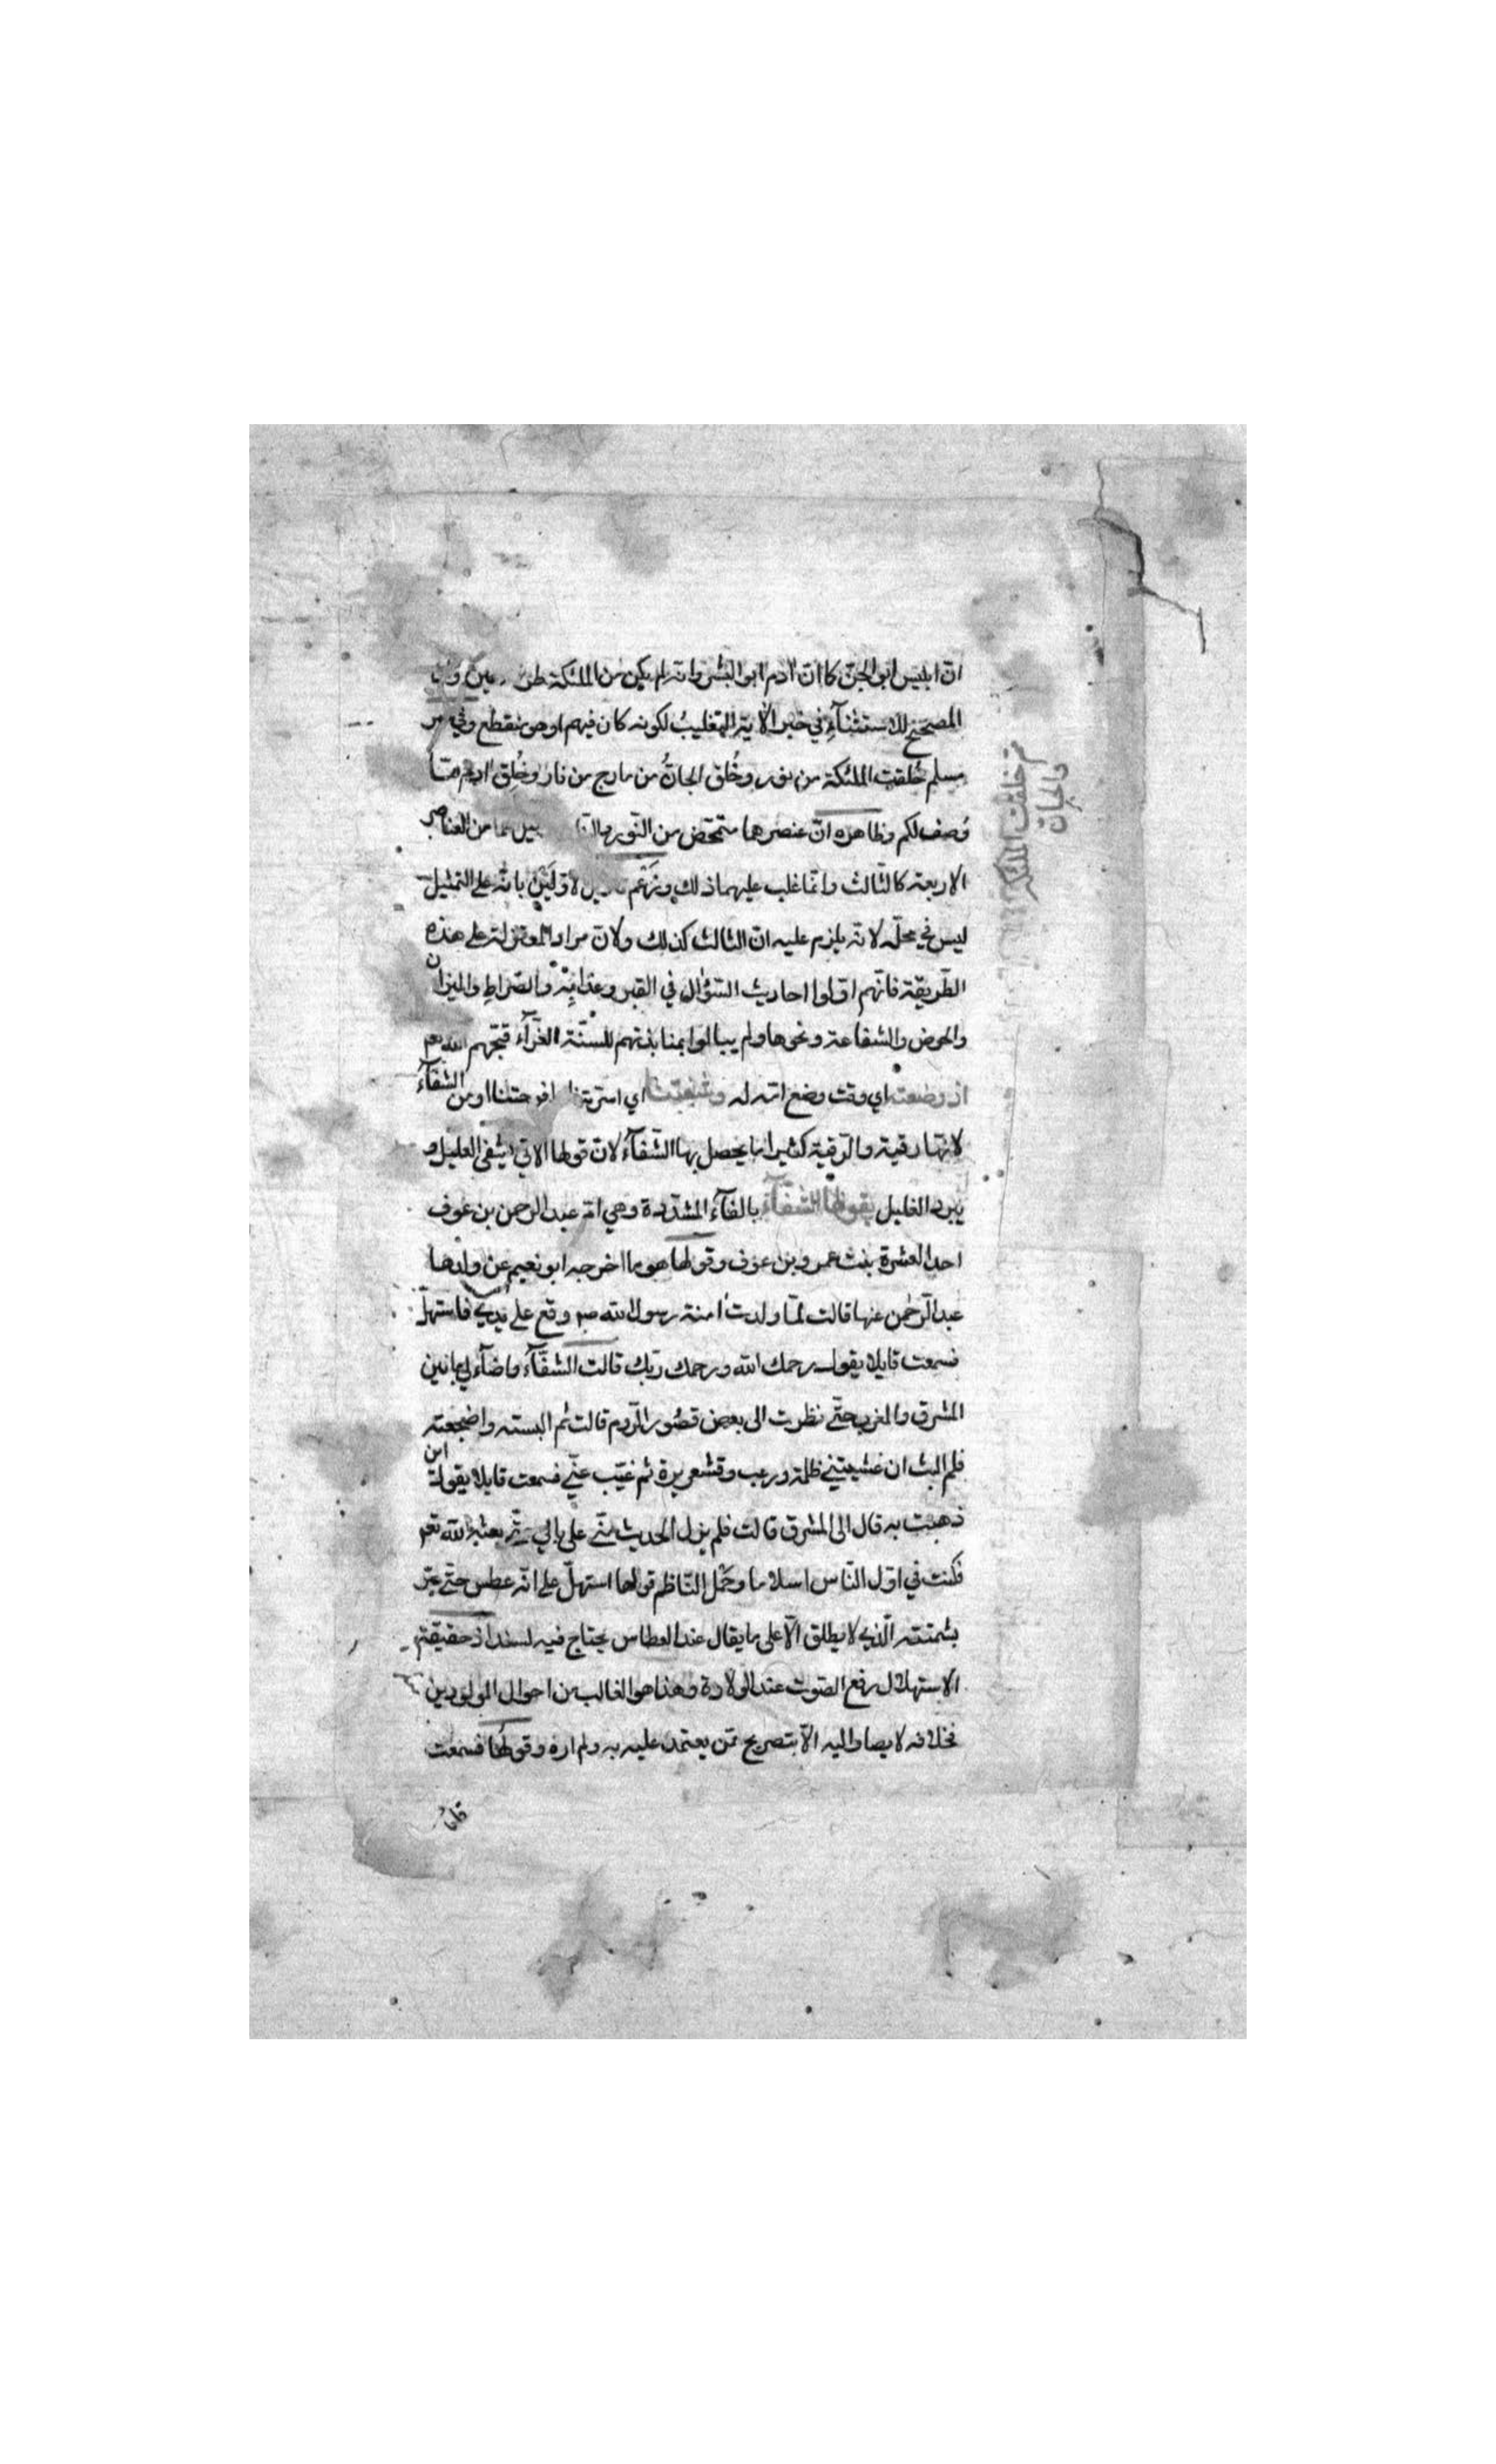 انّ ابليس ابو الجنّ كما انّ آدم ابو البشر وانه لم يكن من الملئكة طرفة عين وانّ
المصحح للاستثناء في خبر الآية التغليب لكونه كان فيهم او هو منقطع وفي خبر
مسلم خُلقت الملئكة من نور وخُلق الجانُّ من مارج من نار وخُلِق آدم ممّا
وُصف لكم وظاهره انّ عنصرهما متمحّض من النّور والنّار من العناصر
الاربعة كالثّالث وانّما غلب عليهما ذلك وزعم الاوّلَيْنِ بانّه على التمثيل
ليس في محلّه لانّه يلزم عليه انّ الثالث كذلك ولانّ مراد المعتزلة على هذه
الطّريقة فانّهم اوّلوا احاديث السّؤال في القبر وعذابِه والصّراطِ والميزان
والحوض والشفاعة ونحوها ولم يبالوا بمنابذتهم للسنّة الغرّآء قبّحهم الله تعم
اذ وضعته اي وقت وضع امّه له وشفتنا اي اسرتنا وافرحتنا او من الشفآء
لانّها رقية والرّقية كثيرا ما يحصل بها الشّفآء لانّ قولها الاتي يشفى العليل و
يبرد الغليل بقولها الشّفّآء بالفآء المشدّدة وهي امّ عبد الرحمن بن عوف
احد العشرة بنت عمرو بن عوف وقولها هو ما اخرجه ابو نعيم عن ولدها
عبد الرّحمن عنها قالت لمّا ولدت آمنة رسول الله صم وقع على يدي فاستهلّ
فسمعت قايلا يقول رحمك الله ورحمك ربّك قالت الشّفّآء واضآء لي ما بين
المشرق والمغرب حتّى نظرت الى بعض قصُور الرّوم قالت ثم البسته واضجعته
فلم البث ان غشيتني ظلمة ورعب وقشعريرة ثم غيّب عنّي فسمعت قايلا يقول اين
ذهبت به قال الى المشرق قالت فلم يزل الحديث منّي على بالي حتّى بعثه الله تعم
فكنت في اوّل النّاس اسلاما وحَمْل النّاظم قولها استهلّ على انّه عطس حتّى عبّر
بشمتته الّذي لا يطلق الّا على ما يقال عند العطاس يحتاج فيه لسند اذ حقيقة
الاستهلال رفع الصّوت عند الولادة وهذا هو الغالب من احوال المولودين
فخلافه لا يصار اليه الّا بتصريح ممّن يعتمد عليه به ولم اره وقولها فسمعت
قايلا
خلقت الملئكة
والجانّ